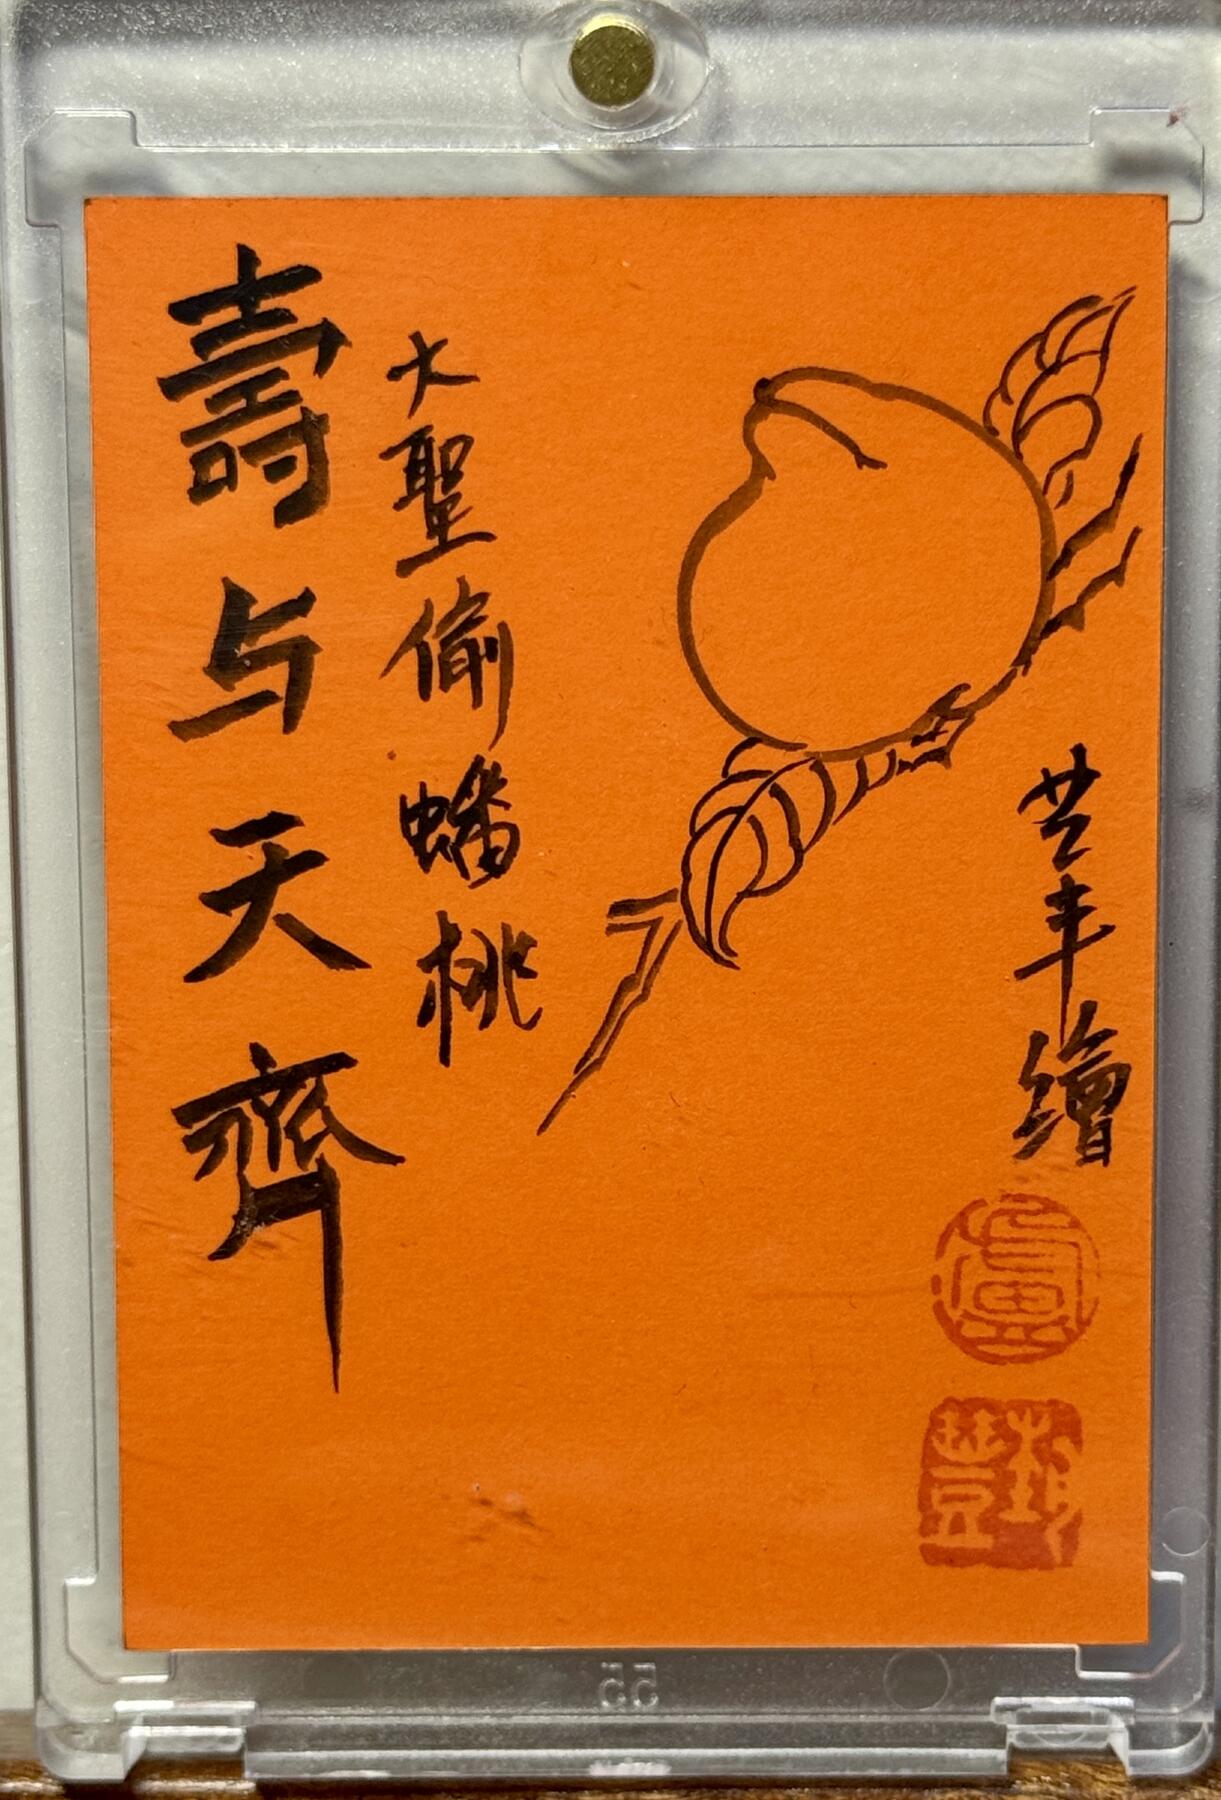 壽与天齊
大聖偷蟠桃
艺丰繪
盧
埶豐
55